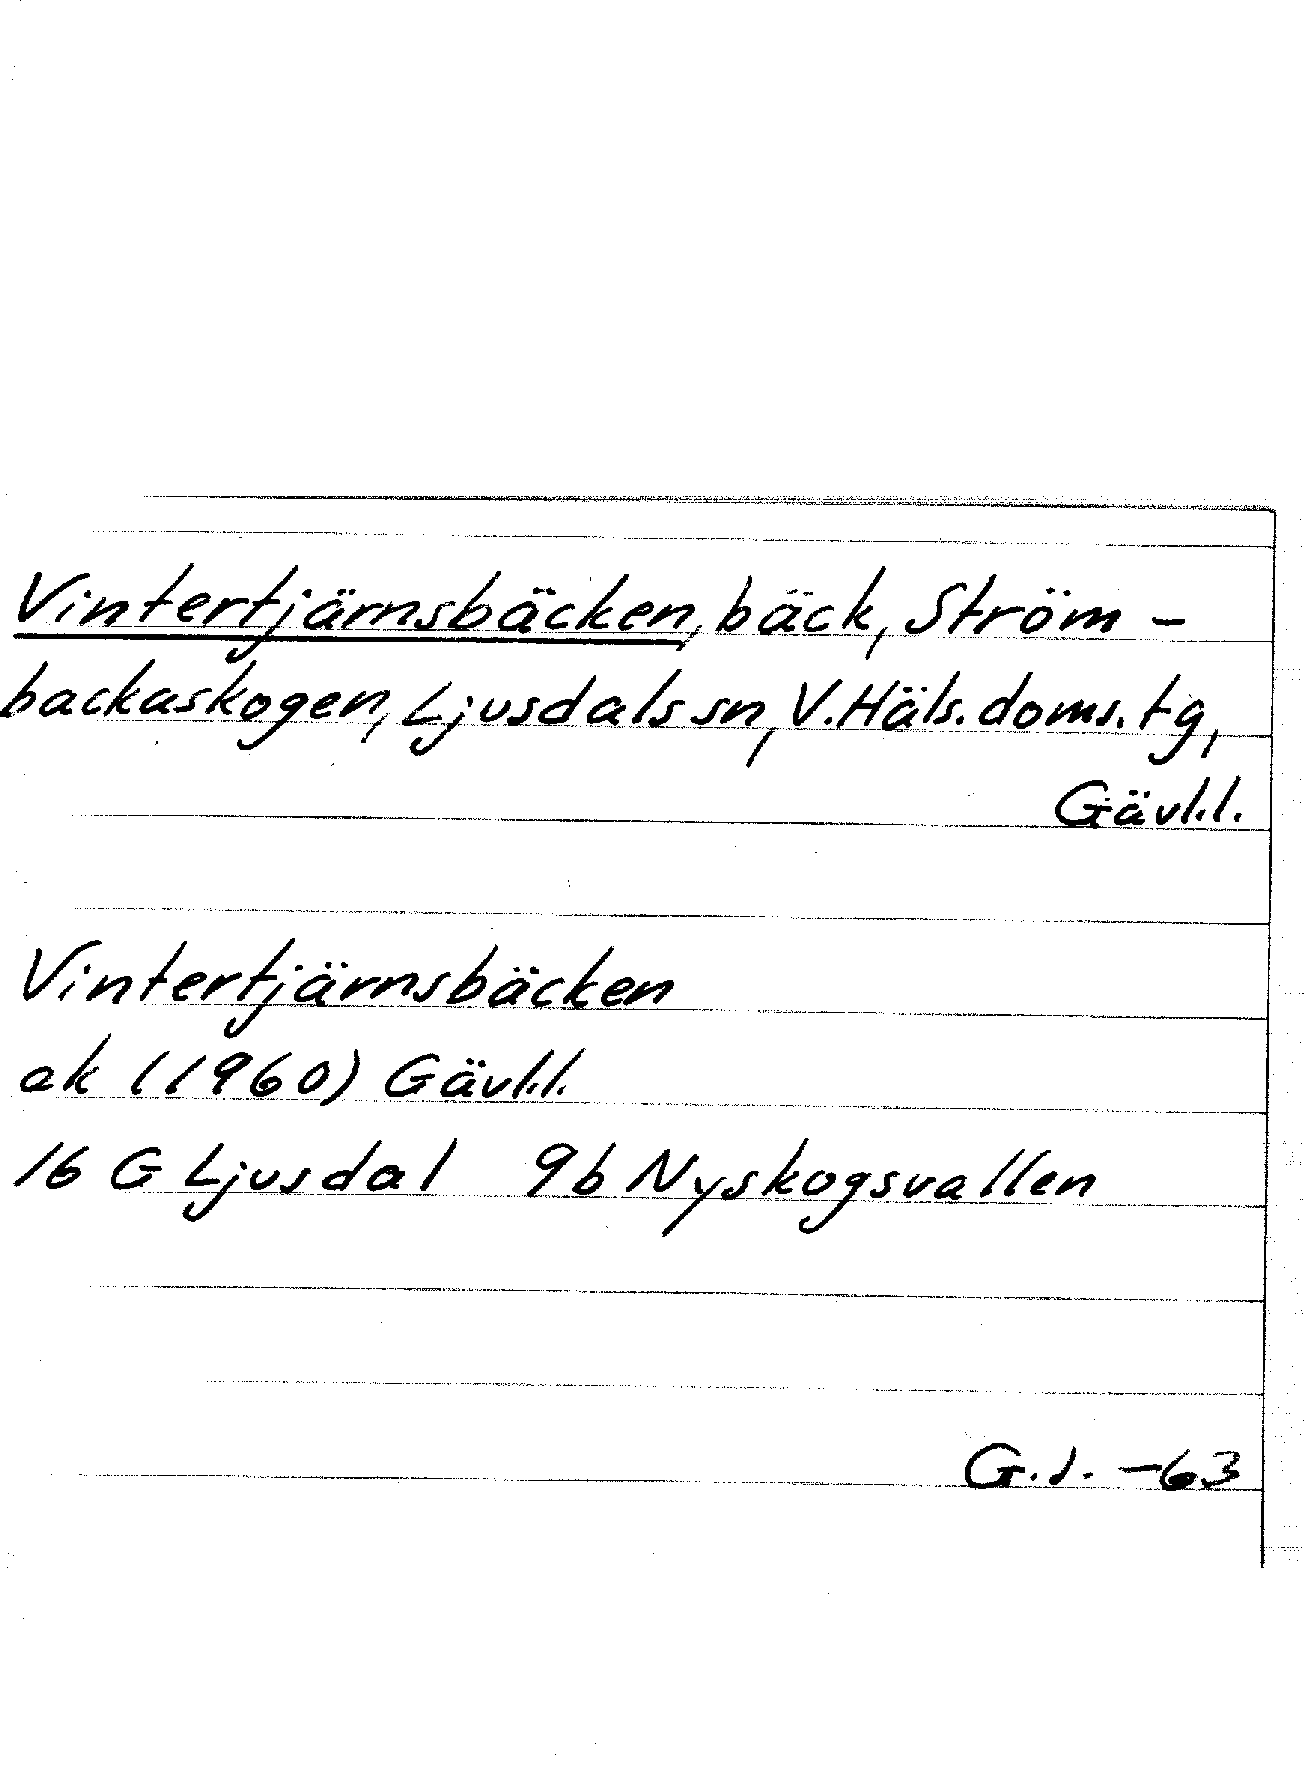 Vintertjärnsbäcken, bäck, Ström-
backaskogen, Ljusdals sn, V.Häls.doms.tg,
Gävl.l.
Vintertjärnsbäcken
ek (1960) Gävl.l.
16 G Ljusdal 9b Nyskogsvallen
G.J. -63